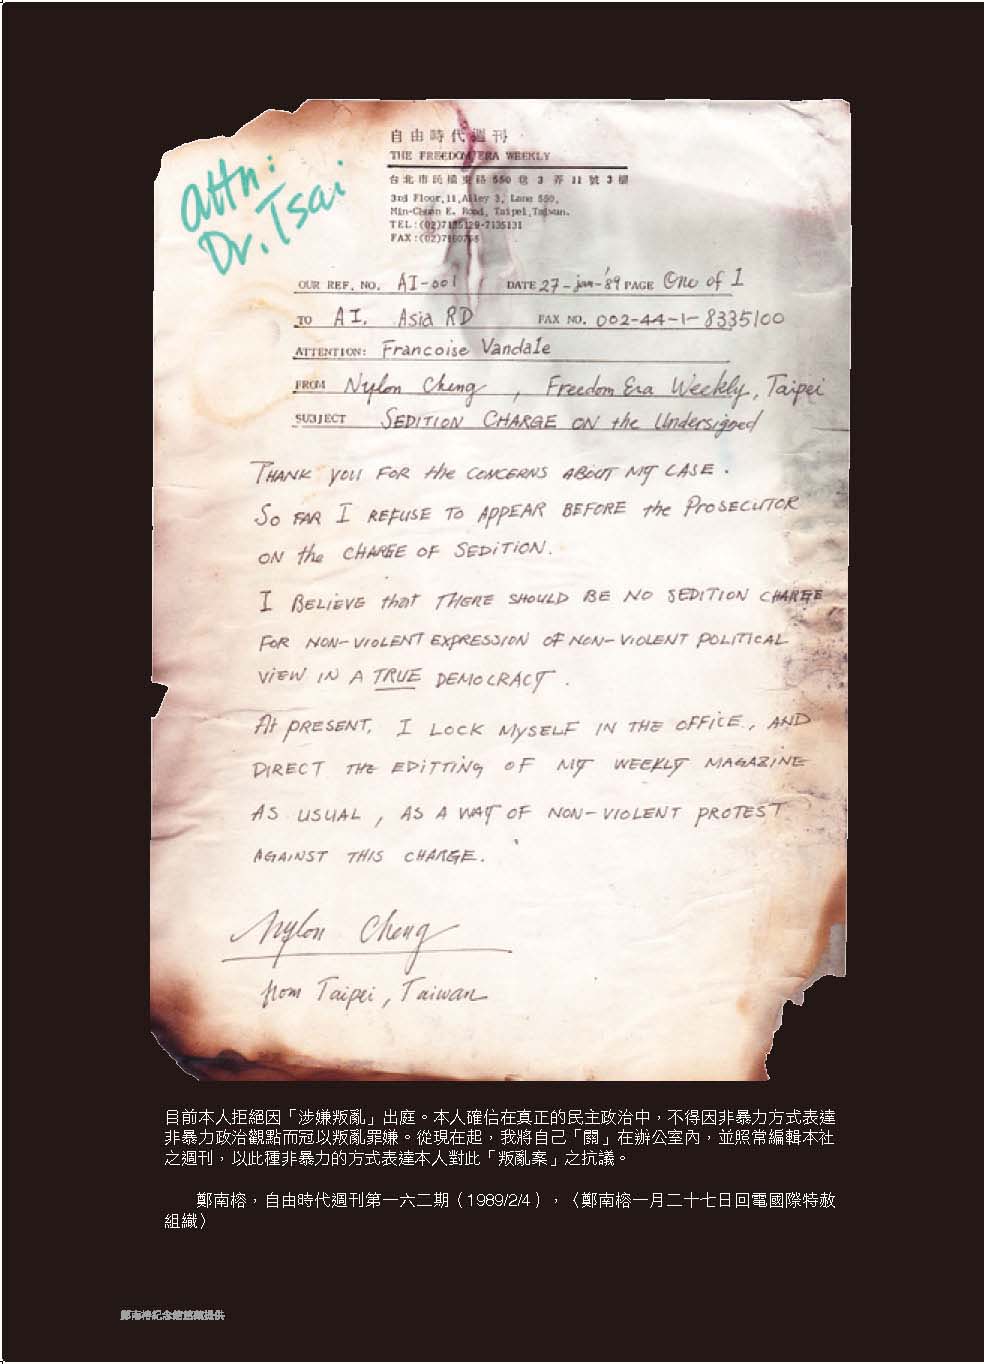 自由時代週刊
THE FREEDOM ERA WEEKLY
台北市民權東路550巷3弄11號3樓
3rd Floor,11,Alley 3, Lane 550,
Min-Chuan E. Road, Taipei,Taiwan.
TEL:(02)7135129-7135131
FAX:(02)
attn:
Dr. Tsai
OUR REF. NO. AI-001 DATE 27-jan-'89 PAGE One of 1
TO AI, Asia RD FAX NO. 002-44-1-8335100
ATTENTION: Francoise Vandale
FROM Nylon Cheng , Freedom Era Weekly, Taipei
SUBJECT SEDITION CHARGE ON the Undersigned
THANK YOU FOR the CONCERNS ABOUT MY CASE.
SO FAR I REFUSE TO APPEAR BEFORE the PROSECUTOR
ON the CHARGE OF SEDITION.
I BELIEVE that THERE SHOULD BE NO SEDITION CHARGE
FOR NON-VIOLENT EXPRESSION OF NON-VIOLENT POLITICAL
VIEW IN A TRUE DEMOCRACY.
At PRESENT, I LOCK MYSELF IN THE OFFICE, AND
DIRECT THE EDITTING OF MY WEEKLY MAGAZINE
AS USUAL, AS A WAY OF NON-VIOLENT PROTEST
AGAINST THIS CHARGE.
Nylon Cheng
from Taipei, Taiwan
目前本人拒絕因「涉嫌叛亂」出庭。本人確信在真正的民主政治中，不得因非暴力方式表達
非暴力政治觀點而冠以叛亂罪嫌。從現在起，我將自己「關」在辦公室內，並照常編輯本社
之週刊，以此種非暴力的方式表達本人對此「叛亂案」之抗議。
鄭南榕，自由時代週刊第一六二期（1989/2/4），〈鄭南榕一月二十七日回電國際特赦
組織〉
鄭南榕紀念館館藏提供